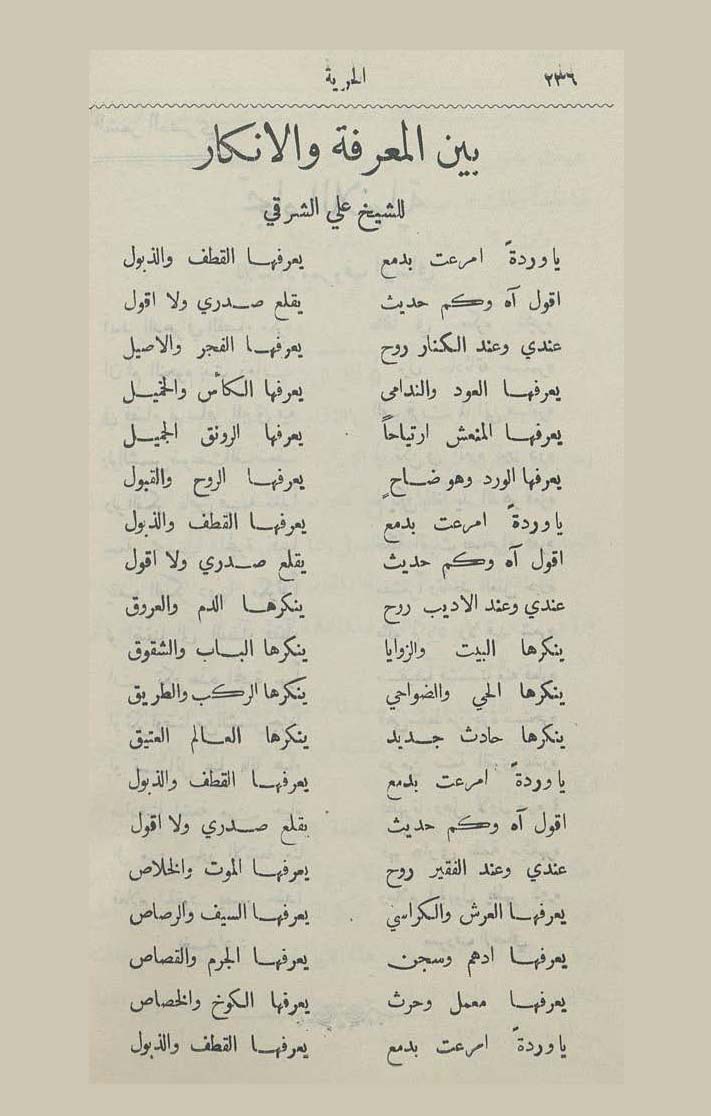 ٢٣٦ الحرية
بين المعرفة والانكار
للشيخ علي الشرقي
يا وردةً امرعت بدمع يعرفها القطف والذبول
اقول آه وكم حديث يقلع صدري ولا اقول
عندي وعند الكنار روح يعرفها الفجر والاصيل
يعرفها العود والندامى يعرفها الكأس والخميل
يعرفها المنعش ارتياحاً يعرفها الرونق الجميل
يعرفها الورد وهو ضاحٍ يعرفها الروح والقبول
يا وردةً امرعت بدمع يعرفها القطف والذبول
اقول آه وكم حديث يقلع صدري ولا اقول
عندي وعند الاديب روح ينكرها الدم والعروق
ينكرها البيت والزوايا ينكرها الباب والشقوق
ينكرها الحي والضواحي ينكرها الركب والطريق
ينكرها حادث جديد ينكرها العالم العتيق
يا وردةً امرعت بدمع يعرفها القطف والذبول
اقول آه وكم حديث يقلع صدري ولا اقول
عندي وعند الفقير روح يعرفها الموت والخلاص
يعرفها العرش والكراسي يعرفها السيف والرصاص
يعرفها ادهم وسجن يعرفها الجرم والقصاص
يعرفها معمل وحرث يعرفها الكوخ والخصاص
يا وردةً امرعت بدمع يعرفها القطف والذبول